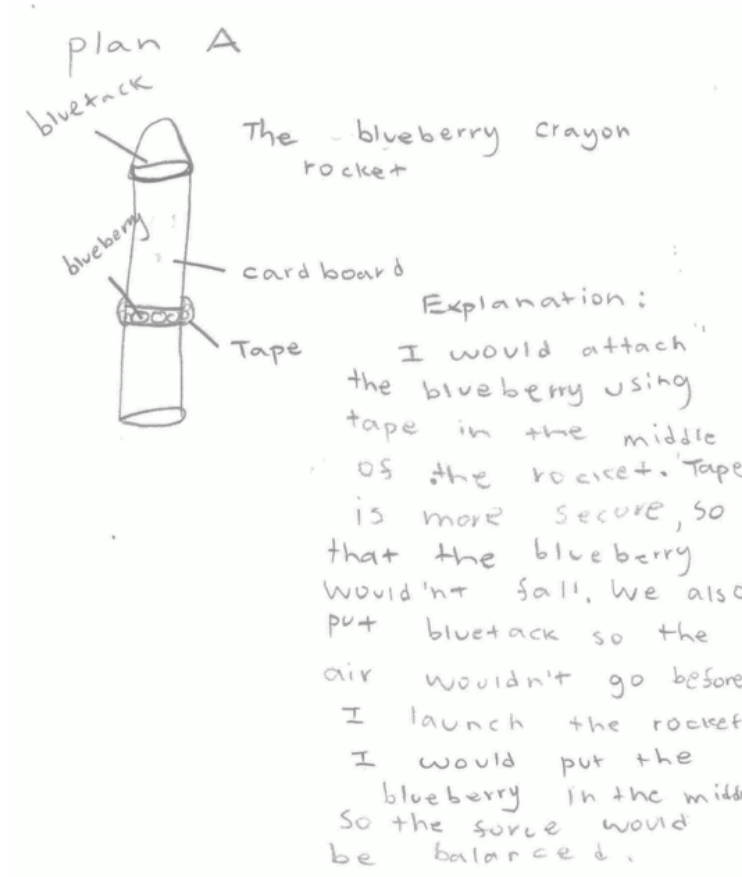 plan A
bluetack
The blueberry crayon
rocket
blueberry
cardboard
Tape
Explanation:
I would attach
the blueberry using
tape in the middle
of the rocket. Tape
is more secure, so
that the blueberry
would'nt fall. We also
put bluetack so the
air wouldn't go before
I launch the rocket
I would put the
blueberry in the midd
so the force would
be balanced.